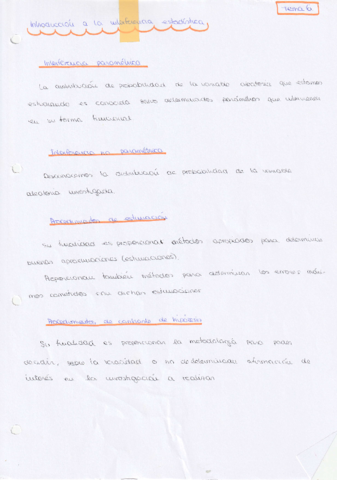 Tema 6
Introducción a la inferencia estadística
Inferencia paramétrica
La distribución de probabilidad de la variable aleatoria que estamos
estudiando es conocida salvo determinados parámetros que intervienen
en su forma funcional
Inferencia no paramétrica
Desconocemos la distribución de probabilidad de la variable
aleatoria investigada
Procedimientos de estimación
Su finalidad es proporcionar métodos apropiados para determinar
buenas aproximaciones (estimaciones)
Proporcionan también métodos para determinar los errores máxi-
mos cometidos con dichas estimaciones
Procedimientos de contraste de hipótesis
Su finalidad es proporcionar la metodología para poder
decidir, sobre la veracidad o no de determinada afirmación de
interés en la investigación a realizar